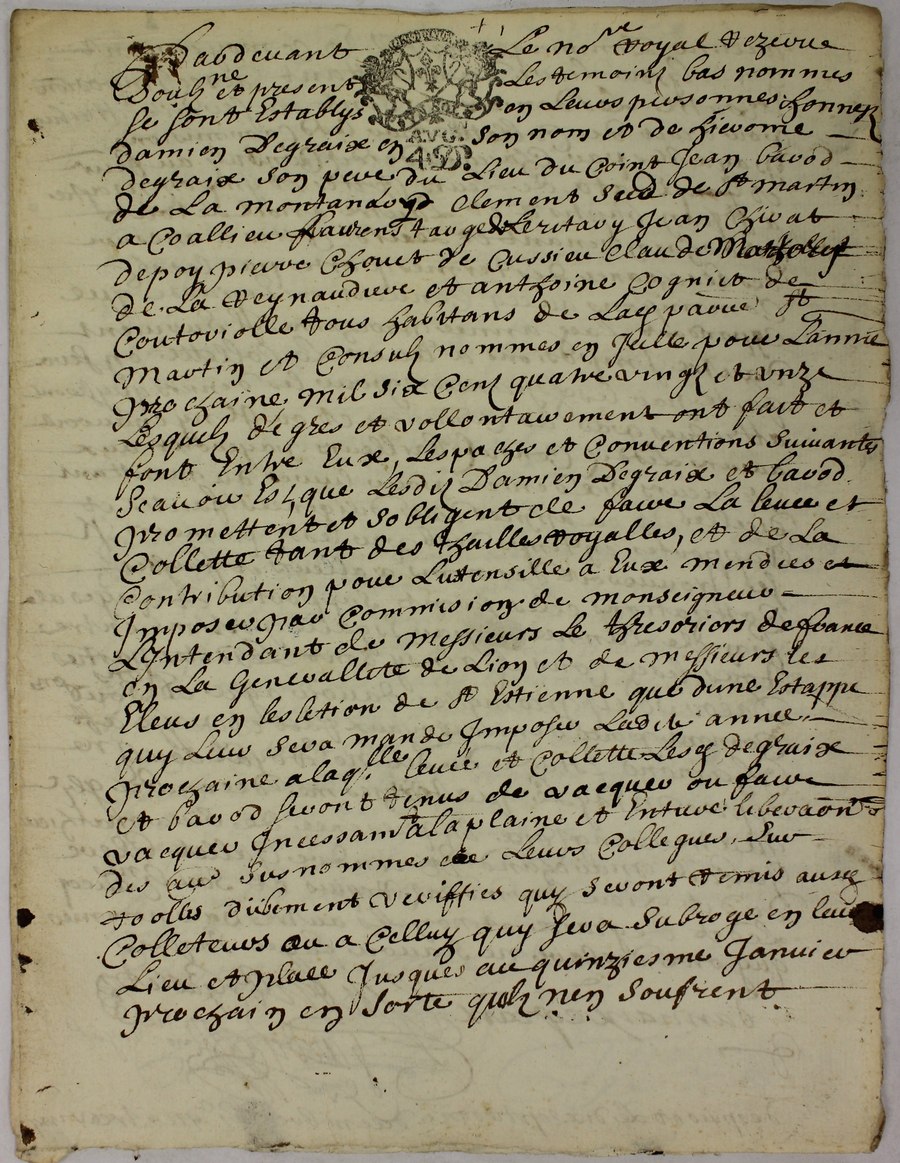 Pardevant Le no.re Royal Rezerve
Soubz.ne et present Les temoins bas nommes
se sont Establys en Leurs personnes honnes
damien Degraix en son nom et de hierome
degraix son pere du Lieu du Coint Jean bavod
de La montana clement de St martin
a Coallieu Jean Chirat
depoy pierre Chovet de Cussieu Claude
de La Reynaudiere et anthoine Cogniet de
Coutoviolle tous habitans de Lad parue St
Martin et Consulz nommes en Jcelle pour Lannee
prochaine mil six Cens quatre vingz et unze
Lesquelz de gres et vollontairement ont fait et
font Entre Eux, Les paches et Conventions Suivantes
Scavoir Est que Lesdiz Damien Degraix et bavod
promettent et sobligent de faire La levee et
Collette tant des thailles Royalles, et de La
Contribution pour Luttensille a Eux mendees et
Imposer par Commision de monseigneur
LIntendant de Messieurs Le thresoriers de france
en La Generallete de Lion et de messieurs les
Eleus en lesletion de St Estienne que dune Estappe
quy Leur sera mande Imposer Ladite annee
prochaine a laq.lle levee et Collette Lesd degraix
et bavod seront tenus de vacquer ou faire
vacquer Incessam.t a la plaine et Entiere liberaon
des susnommes Leurs Collegues, Sur
Roolles dubement veriffies quy Seront Remis ausd
Colleteurs ou a Celluy quy sera Subroge en leur
Lieu et place Jusques au quinziesme Janvier
prochain en sorte quilz nen soufrent
AVG.